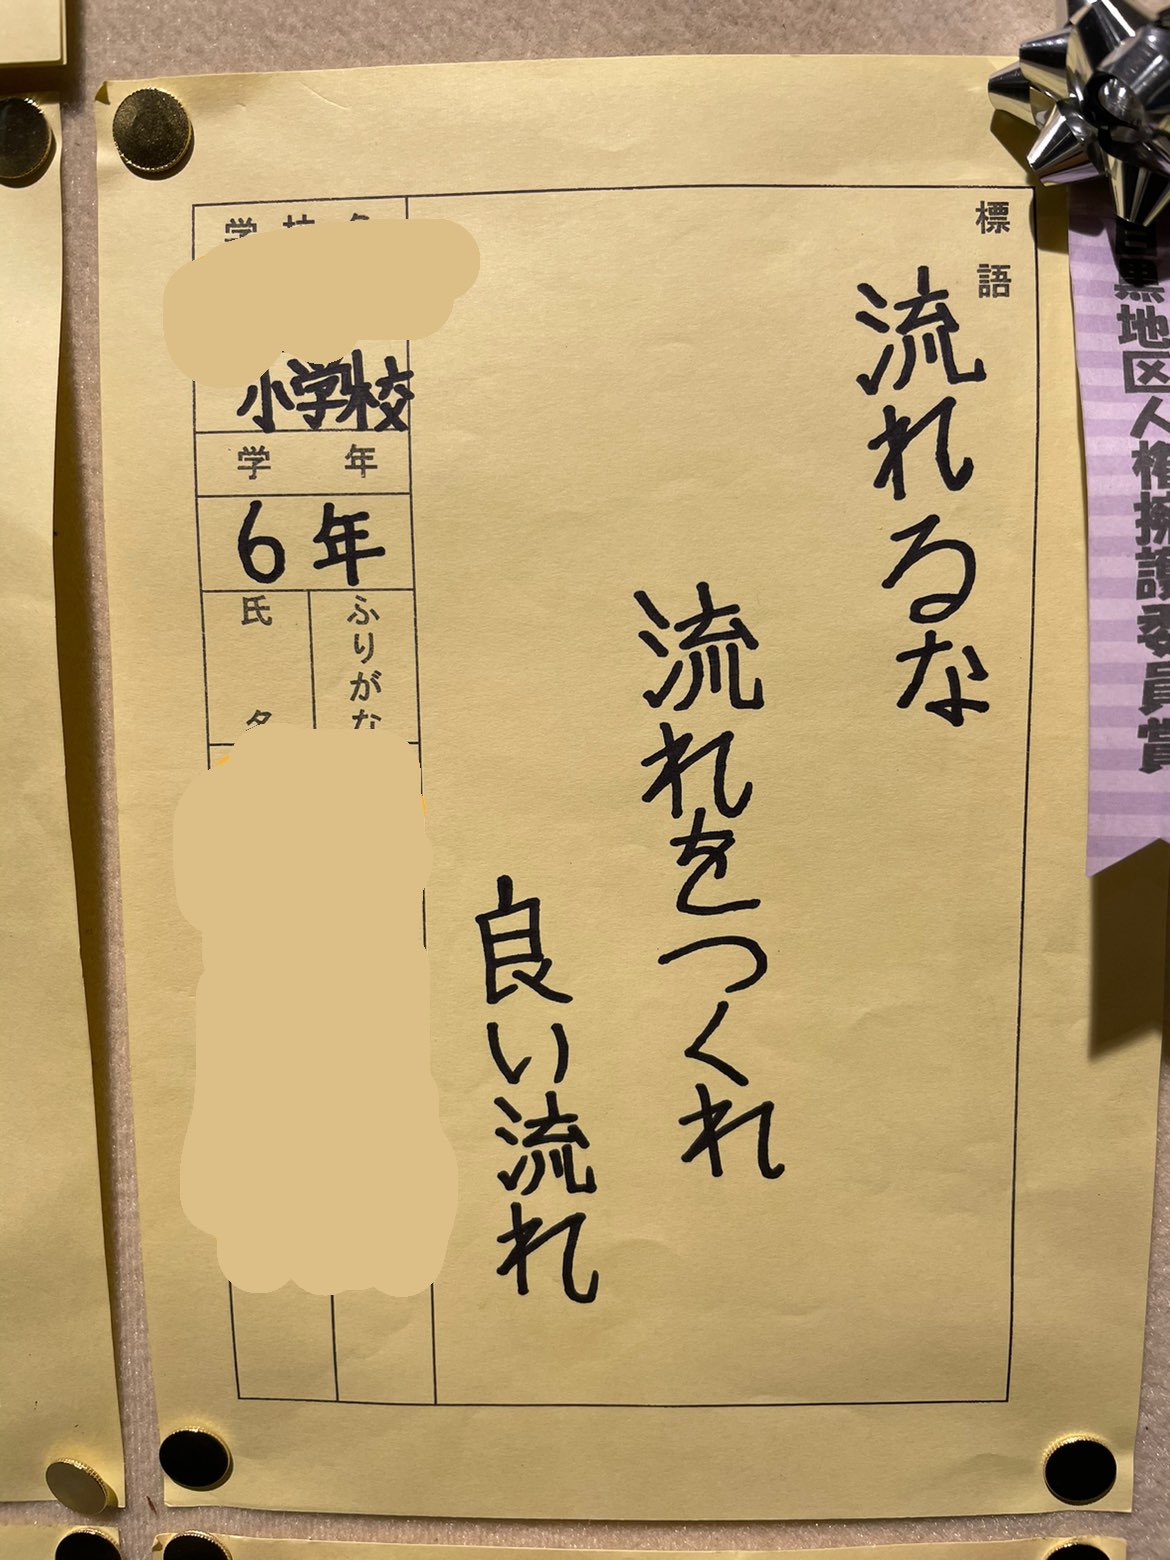 標語
流れるな
流れをつくれ
良い流れ
小学校
学年
6年
ふりがな
氏
黒地区人権擁護委員賞